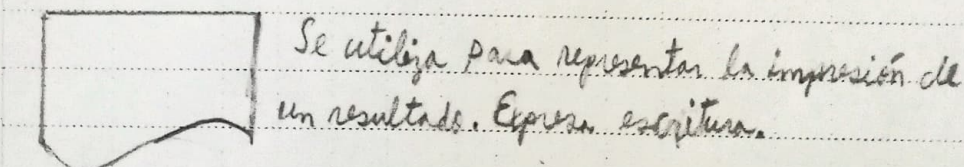 Se utiliza para representar la impresión de
un resultado. Expresa escritura.